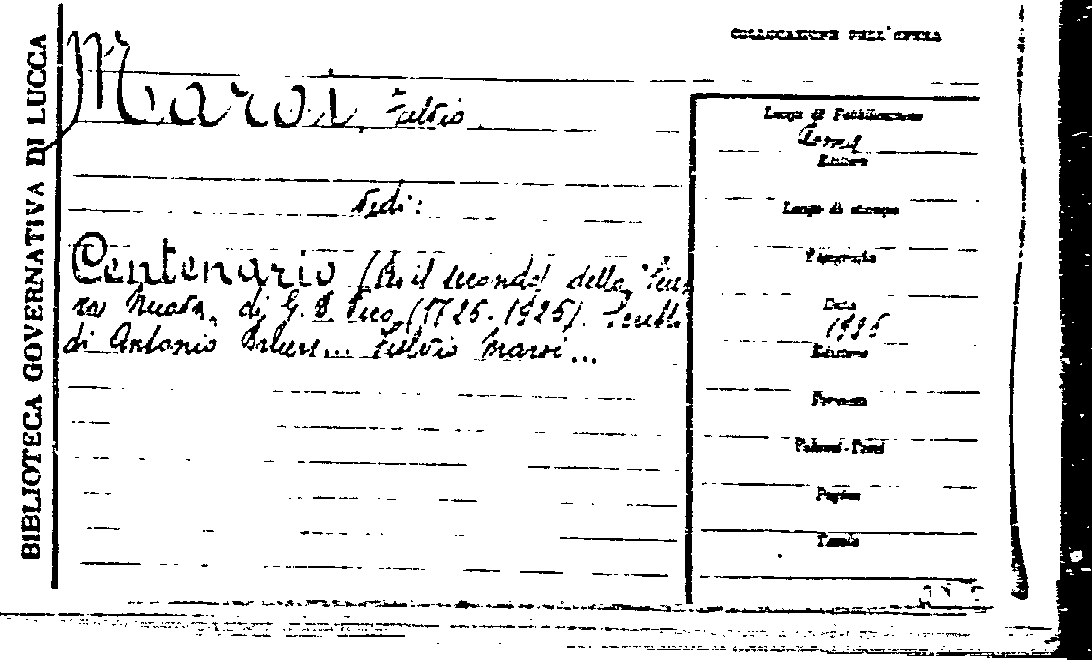 BIBLIOTECA GOVERNATIVA DI LUCCA
COLLOCAZIONE DELL'OPERA
Maroi, Fulvio
Vedi:
Centenario (Per il secondo) della "Scien
za Nuova" di G. B. Vico (1725-1925). Scritti
di Antonio ... Fulvio Maroi ...
Luogo di Pubblicazione
Roma
Editore
Luogo di stampa
Tipografia
Data
1925
Edizione
Formato
Volumi-Tomi
Pagine
Tavole